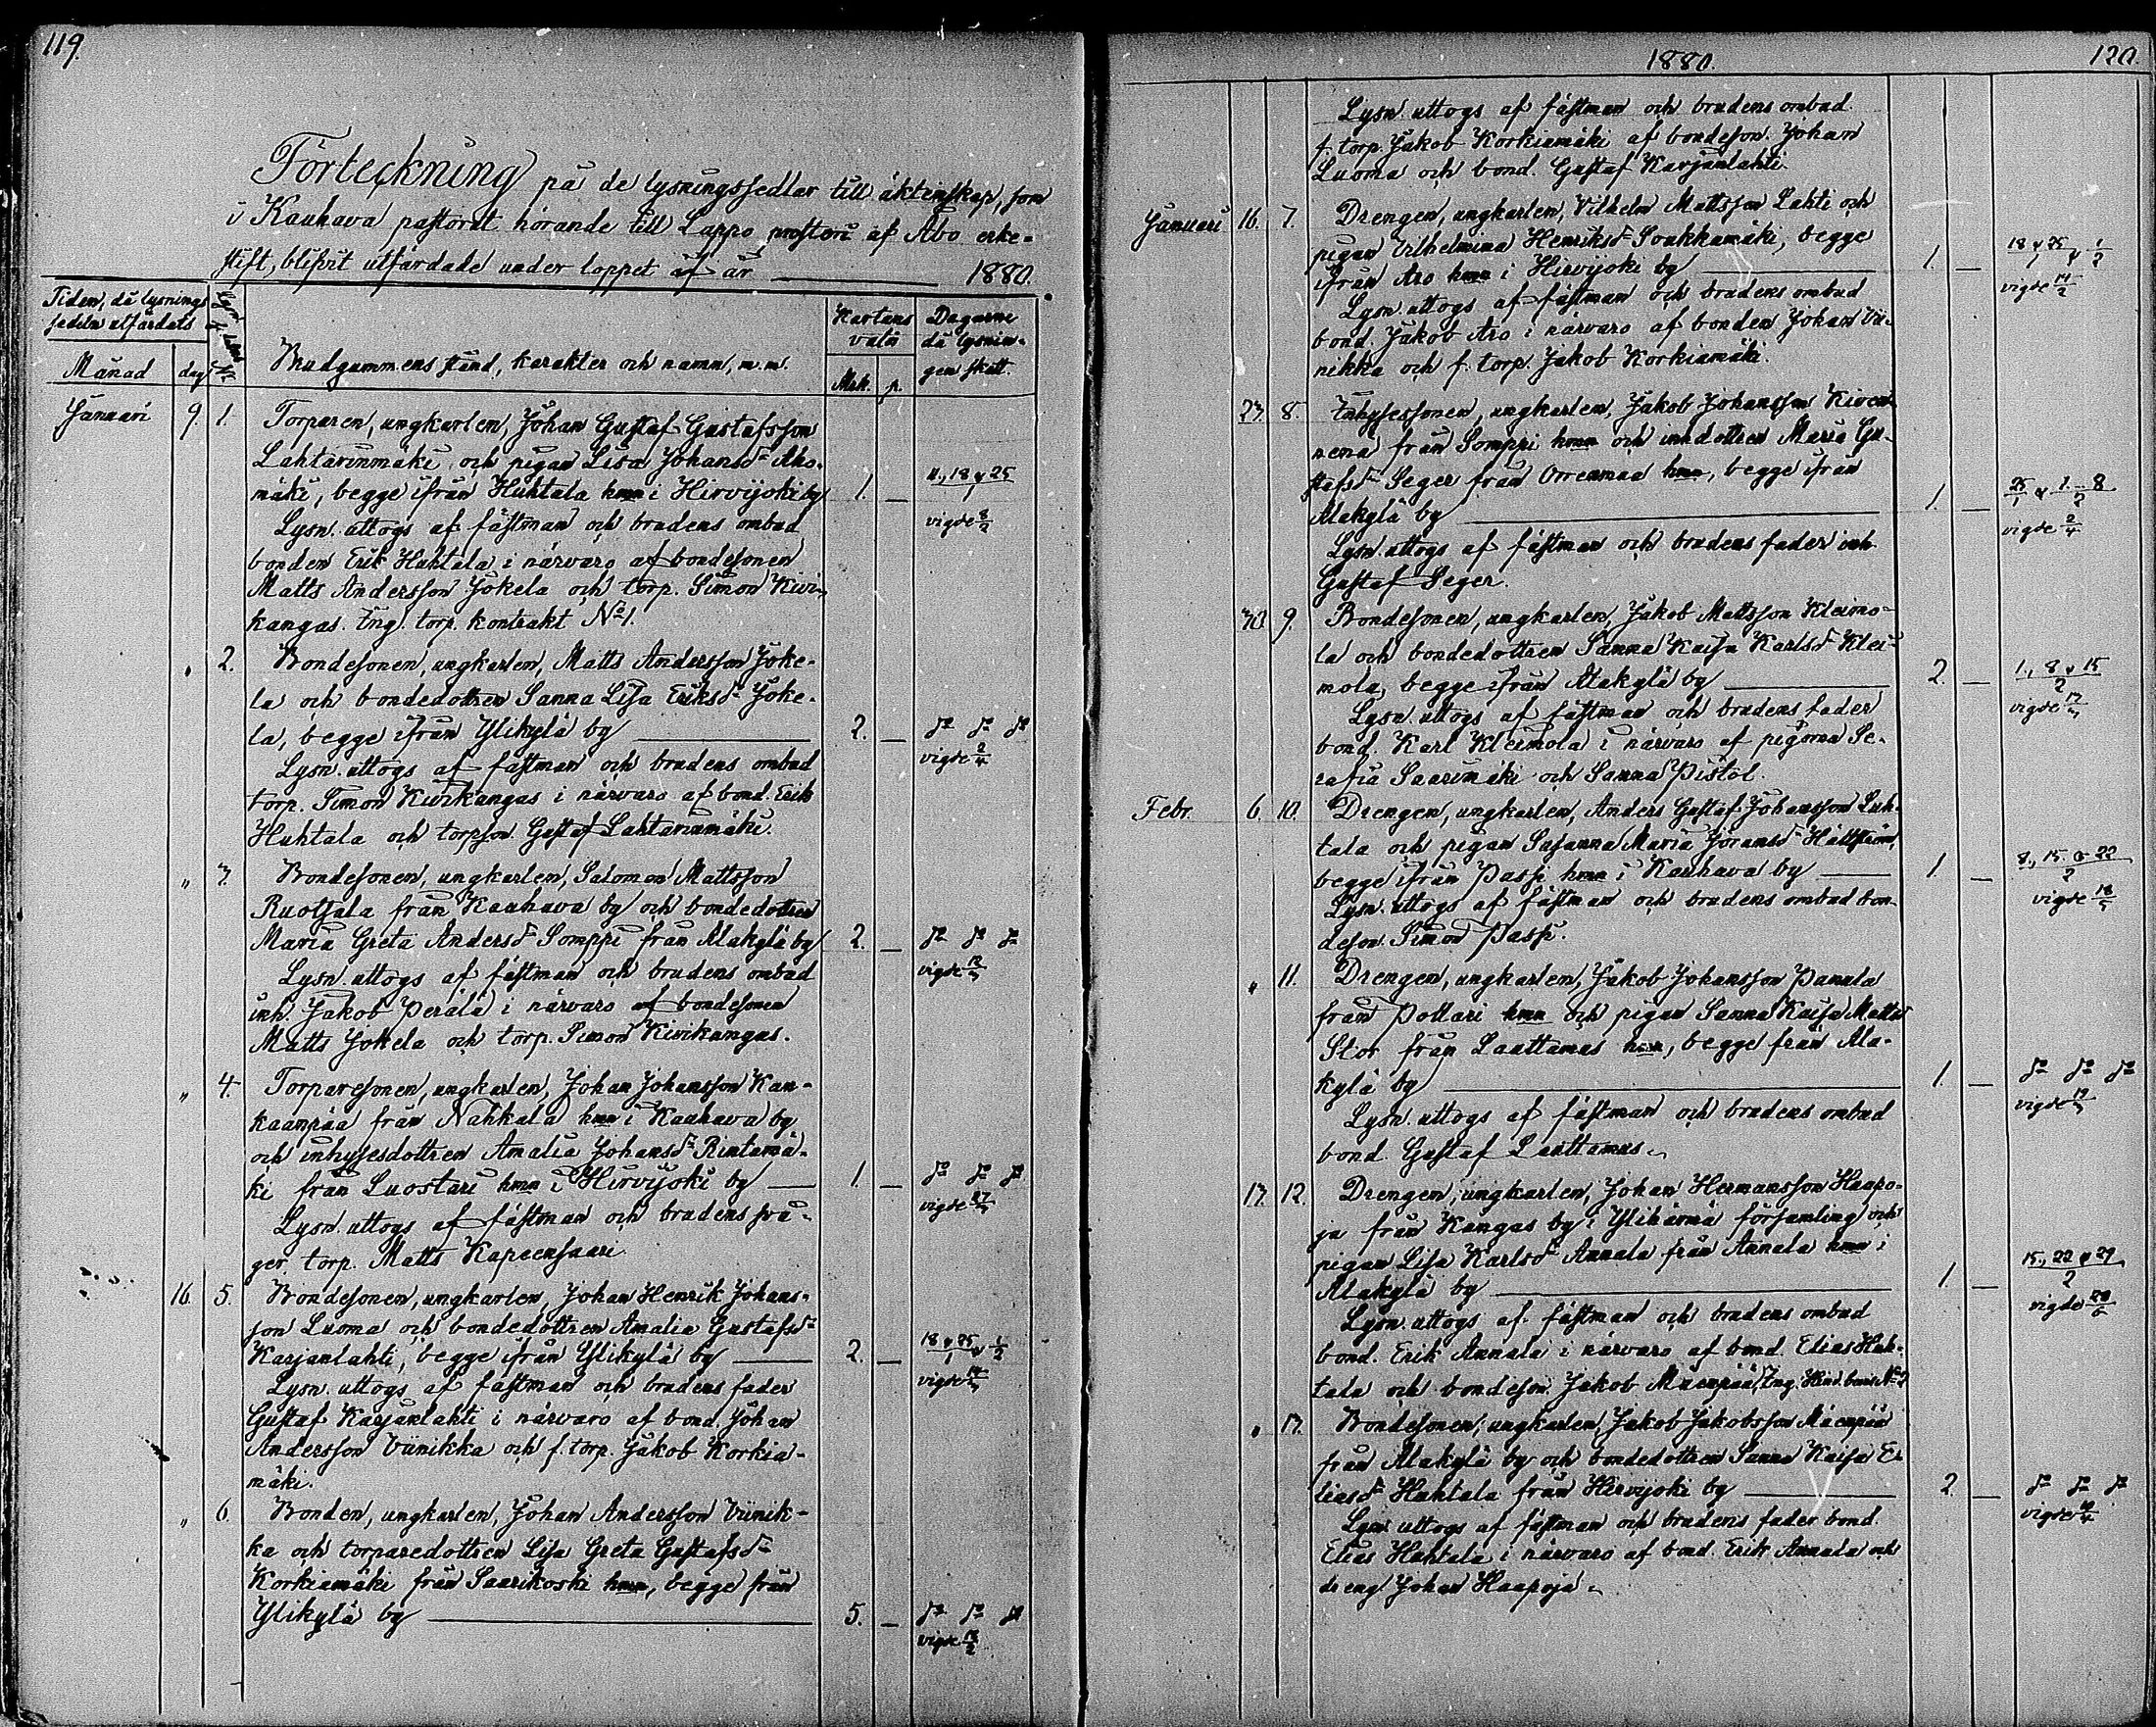 119.
Förteckning på de lysningssedlar till äktenskap, som
i Kauhava pastorat hörande till Lappo prosteri af Åbo erke-
stift, blifvit utfärdade under loppet af år 1880.
Tiden, då lysnings
sedeln utfärdats
Månad dag
No
Brudgummens stånd, karakter och namn, m.m.
Kartans
valör
Mrk. p.
Dagarne
då lysnin-
gen skett.
Januari 9. 1. Torparen, ungkarlen, Johan Gustaf Gustafsson
Lahtarinmäki och pigan Lisa Johansdr Aho-
mäki, begge ifrån Huhtala hmn i Hirvijoki by 1. — 11., 18 & 25/1
Lysn. uttogs af fästman och brudens ombud vigde 8/2
bonden Erik Huhtala i närvaro af bondesonen
Matts Andersson Jokela och torp. Simon Kivi-
kangas. Ing. torp. kontrakt No 1.
" 2. Bondesonen, ungkarlen, Matts Andersson Joke-
la och bondedottren Sanna Lisa Eriksdr Joke-
la, begge ifrån Ylikylä by 2. — do do do
Lysn. uttogs af fästman och brudens ombud vigde 2/4
torp. Simon Kivikangas i närvaro af bond. Erik
Huhtala och torpson Gustaf Lahtarinmäki.
" 3. Bondesonen, ungkarlen, Salomon Mattsson
Ruotsala från Kauhava by och bondedottren
Maria Greta Andersdr Somppi från Alakylä by 2. — do do do
Lysn. uttogs af fästman och brudens ombud vigde
inh. Jakob Perälä i närvaro af bondesonen
Matts Jokela och torp. Simon Kivikangas.
" 4. Torparesonen, ungkarlen, Johan Johansson Kan-
kaanpää från Nahkala hmn i Kauhava by
och inhysesdottren Amalia Johansdr Rintamä-
ki från Luostari hmn i Hirvijoki by 1. — do do do
Lysn. uttogs af fästman och brudens svå- vigde
ger torp. Matts Kapeensaari
16. 5. Bondesonen, ungkarlen, Johan Henrik Johans-
son Luoma och bondedottren Amalia Gustafsdr
Karjanlahti, begge ifrån Ylikylä by 2. — 18 & 25/1 & 1/2
Lysn. uttogs af fästman och brudens fader vigde
Gustaf Karjanlahti i närvaro af bond. Johan
Andersson Viinikka och f. torp. Jakob Korkia-
mäki.
" 6. Bonden, ungkarlen, Johan Andersson Viinik-
ka och torparedottren Lisa Greta Gustafsdr
Korkiamäki från Saarikoski hmn, begge från
Ylikylä by 5. — do do do
vigde
1880. 120.
Lysn. uttogs af fästman och brudens ombud
f. torp. Jakob Korkiamäki af bondeson. Johan
Luoma och bond. Gustaf Karjanlahti.
Januari 16. 7. Drengen, ungkarlen, Vilhelm Mattsson Lahti och
pigan Vilhelmina Henriksdr Soukkamäki, begge
ifrån Aro hmn i Hirvijoki by 1. — 18 & 25/1 & 1/2
Lysn. uttogs af fästman och brudens ombud vigde 14/2
bond. Jakob Aro i närvaro af bonden Johan Vii-
nikka och f. torp. Jakob Korkiamäki.
23. 8. Inhysessonen, ungkarlen, Jakob Johansson Kiven-
nenä från Somppi hmn och inhdottren Maria Gu-
stafsdr Seger från Orrenmaa hmn, begge ifrån
Alakylä by 1. — 25/1 & 1. 8/2
Lysn. uttogs af fästman och brudens fader inh. vigde 2/4
Gustaf Seger.
30. 9. Bondesonen, ungkarlen, Jakob Mattsson Kleimo-
la och bondedottren Sanna Kaisa Karlsdr Klei-
mola, begge ifrån Alakylä by 2. — 1., 8 & 15/2
Lysn. uttogs af fästman och brudens fader vigde
bond. Karl Kleimola i närvaro af pigorna Se-
rafia Saarimäki och Sanna Pistol.
Febr. 6. 10. Drengen, ungkarlen, Anders Gustaf Johansson Luh-
tala och pigan Susanna Maria Göransdr Hällström,
begge ifrån Passi hmn i Kauhava by 1. — 8., 15. & 22/2
Lysn. uttogs af fästman och brudens ombud bon- vigde 18/5
deson. Simon Passi.
" 11. Drengen, ungkarlen, Jakob Johansson Panula
från Pollari hmn och pigan Sanna Kaisa Mattsdr
Stor från Lauttamus hmn, begge från Ala-
kylä by 1. — do do do
Lysn. uttogs af fästman och brudens ombud vigde
bond. Gustaf Lauttamus.
13. 12. Drengen, ungkarlen, Johan Hermansson Haapo-
ja från Kangas by i Ylihärmä församling och
pigan Lisa Karlsdr Annala från Annala hmn i
Alakylä by 1. — 15., 22 & 29/2
Lysn. uttogs af fästman och brudens ombud vigde
bond. Erik Annala i närvaro af bond. Elias Huh-
tala och bondeson. Jakob Mäenpää, Ing. Hind.bevis No 2
" 13. Bondesonen, ungkarlen, Jakob Jakobsson Mäenpää
från Alakylä by och bondedottren Sanna Kaisa E-
liasdr Huhtala från Hirvijoki by 2. — do do do
Lysn. uttogs af fästman och brudens fader bond. vigde
Elias Huhtala i närvaro af bond. Erik Annala och
dreng Johan Haapoja.